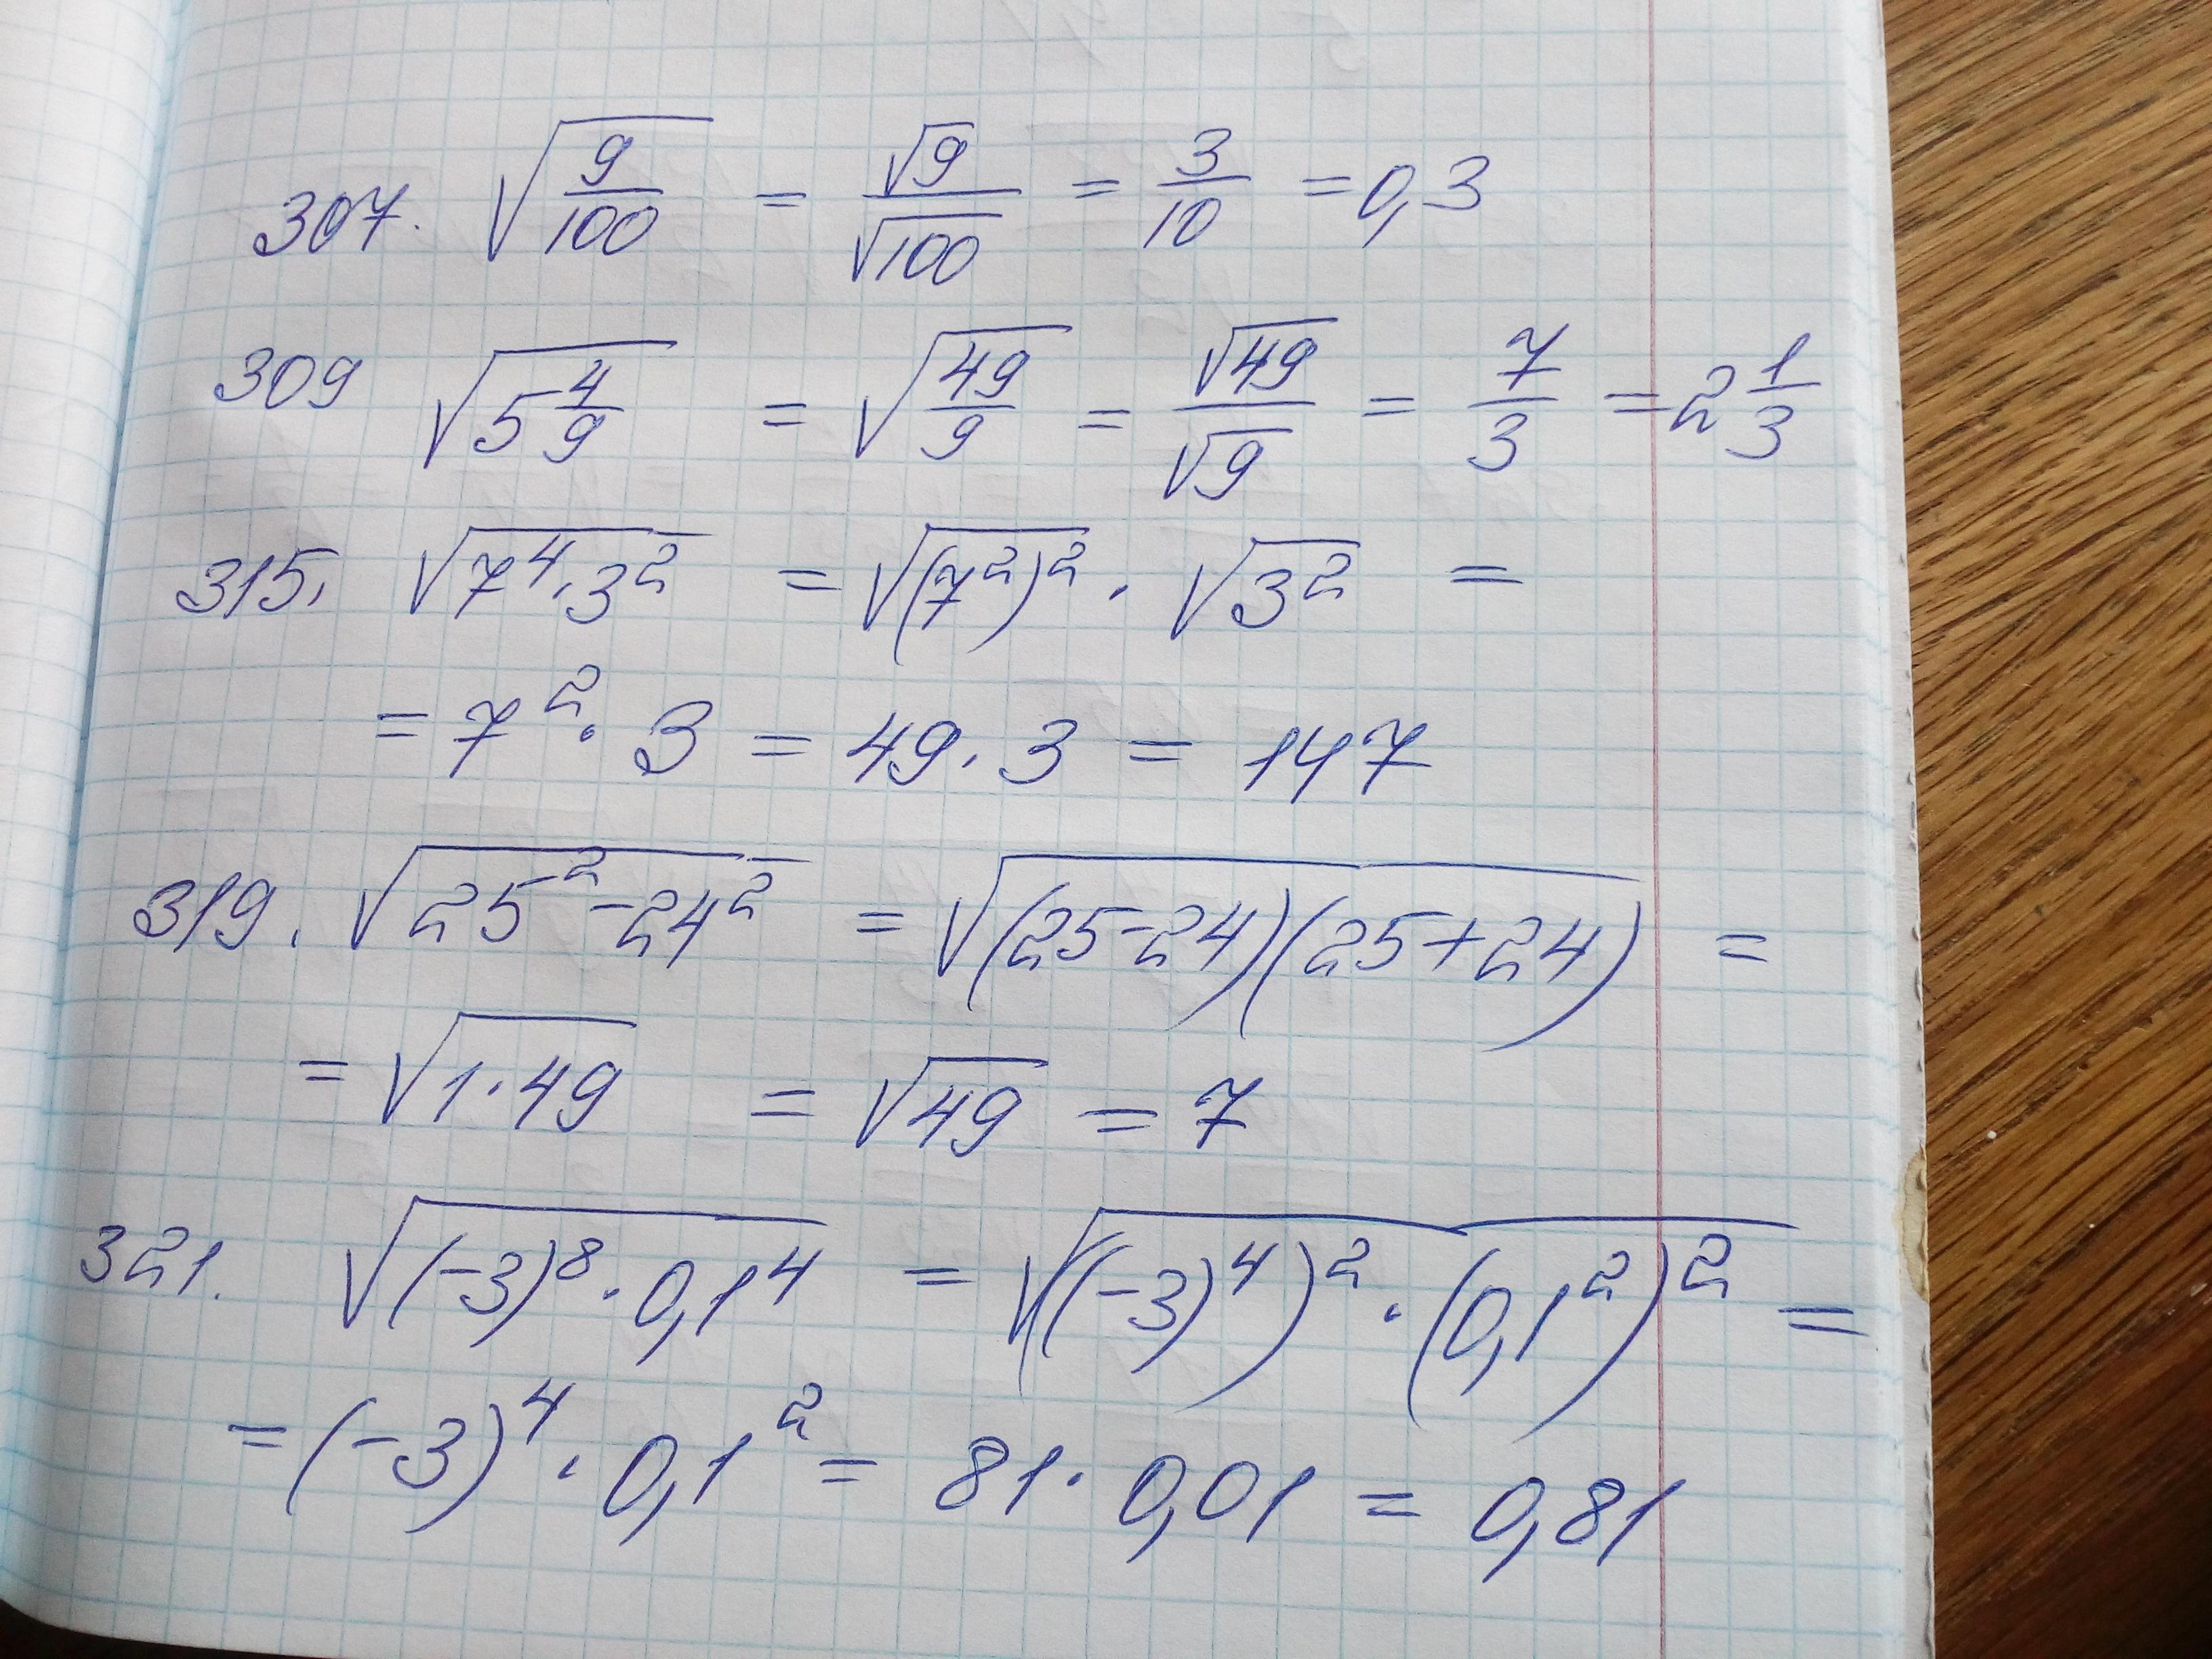 307. √(9/100) = √9/√100 = 3/10 = 0,3
309 √(5 4/9) = √(49/9) = √49/√9 = 7/3 = 2 1/3
315. √(7⁴·3²) = √((7²)²) · √(3²) =
= 7² · 3 = 49 · 3 = 147
319. √(25²-24²) = √((25-24)(25+24)) =
= √(1·49) = √49 = 7
321. √((-3)⁸ · 0,1⁴) = √(((-3)⁴)² · (0,1²)²) =
= (-3)⁴ · 0,1² = 81 · 0,01 = 0,81